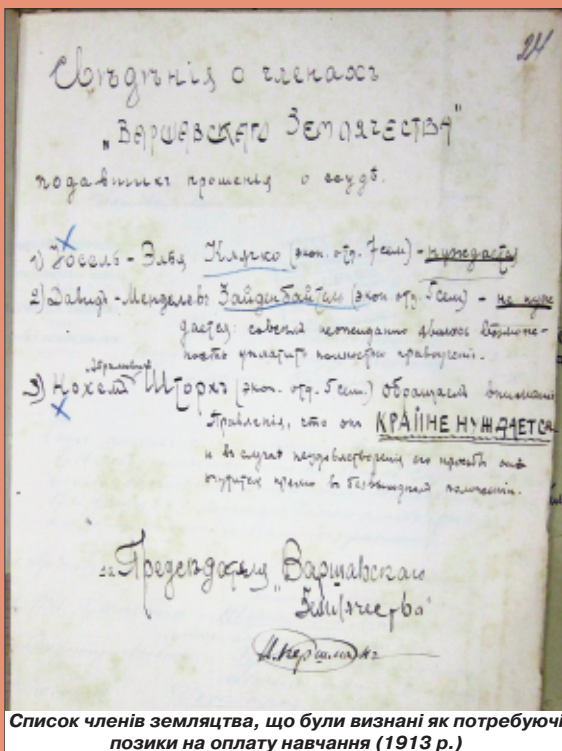 24
Свѣдѣнія о членахъ
„ВАРШАВСКАГО ЗЕМЛЯЧЕСТВА"
подавшихъ прошенія о ссудѣ.
1) Іосель - Элья Клячко (экон. отд. 7 сем) - нуждается
2) Давидъ - Менделевъ Зайденбайтель (экон. отд. 5 сем) - не нуж
дается: совсѣмъ неожиданно явилась возмож-
ность уплатить полностью
Абрамовичъ
3) Нохемъ Шторхъ (экон. отд. 5 сем.) обращаемъ вниманіе
Правленія, что онъ КРАЙНЕ НУЖДАЕТСЯ
и въ случаѣ неудовлетворенія его просьбы
въ безвыходномъ положеніи.
за Предсѣдателя „Варшавскаго
Землячества"
Список членів земляцтва, що були визнані як потребуючі
позики на оплату навчання (1913 р.)